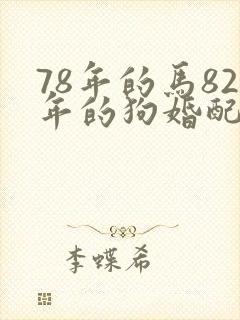 78年的馬82
年的狗婚配
李蝶希